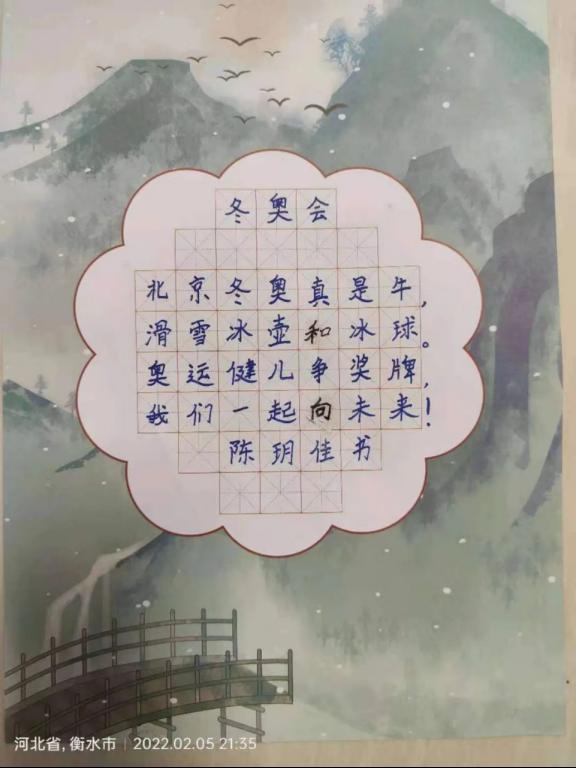 冬奥会
北京冬奥真是牛,
滑雪冰壶和冰球。
奥运健儿争奖牌,
我们一起向未来!
陈玥佳书
河北省, 衡水市 | 2022.02.05 21:35